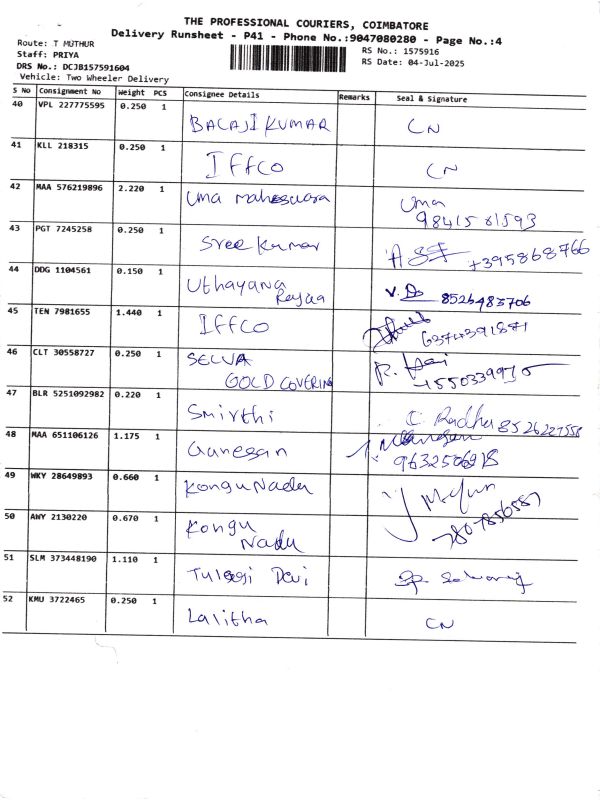 THE PROFESSIONAL COURIERS, COIMBATORE
Delivery Runsheet - P41 - Phone No.:9047080280 - Page No.:4
Route: T MUTHUR
Staff: PRIYA
DRS No.: DCJB157591604
Vehicle: Two Wheeler Delivery
RS No.: 1575916
RS Date: 04-Jul-2025
S No Consignment No Weight PCS Consignee Details Remarks Seal & Signature
40 VPL 227775595 0.250 1 BALAJI KUMAR CN
41 KLL 218315 0.250 1 IFFCO CN
42 MAA 576219896 2.220 1 Uma Maheswara Uma
9841581593
43 PGT 7245258 0.250 1 Sree Kumar
44 DDG 1104561 0.150 1 Uthayana
Rajaa 8526483706
45 TEN 7981655 1.440 1 IFFCO 6374391871
46 CLT 30558727 0.250 1 SELVA
GOLD COVERING R. Hari
47 BLR 5251092982 0.220 1 Smirthi C Radha 8526227558
48 MAA 651106126 1.175 1 Ganesan
49 WKY 28649893 0.660 1 Kongu Nadu
50 AWY 2130220 0.670 1 Kongu
Nadu 7807856587
51 SLM 373448190 1.110 1 Tulasi Devi
52 KMU 3722465 0.250 1 Lalitha CN